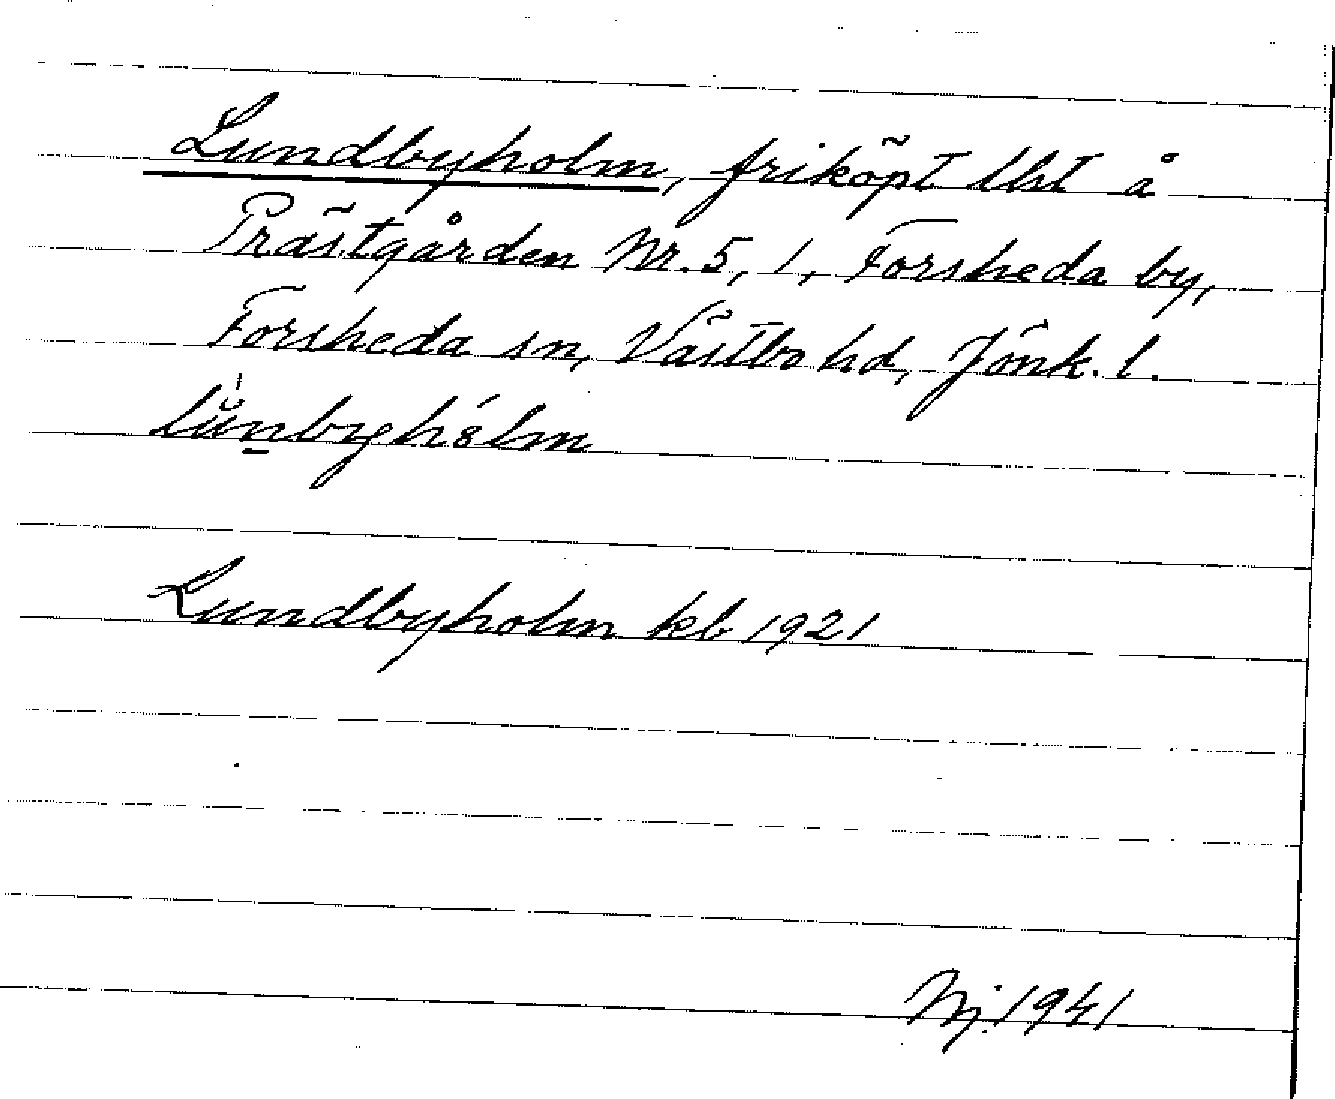 Lundbyholm, friköpt lht å
Prästgården Nr. 5, 1, Forsheda by,
Forsheda sn, Västbo hd, Jönk. l.
Lundbyholm kb 1921
Nj. 1941